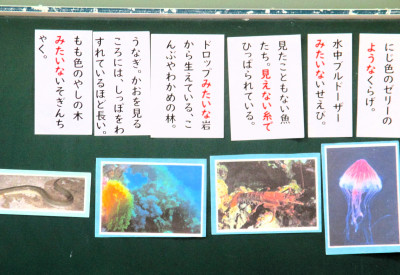 にじ色のゼリーの
ようなくらげ。
水中ブルドーザー
みたいないせえび。
見たこともない魚
たち。見えない糸で
ひっぱられている。
ドロップみたいな岩
から生えている、こ
んぶやわかめの林。
うなぎ。かおを見る
ころには、しっぽをわ
すれているほど長い。
もも色のやしの木
みたいないそぎんち
ゃく。